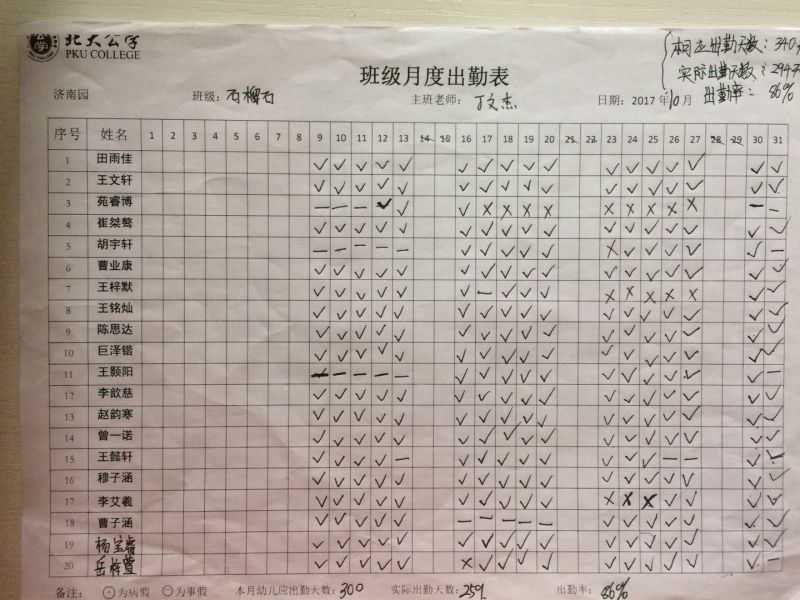 北大公学
PKU COLLEGE
相应出勤天数:340
实际出勤天数:294天
出勤率:86%
班级月度出勤表
济南园 班级:石榴石 主班老师:丁文杰 日期:2017年10月
序号 姓名 1 2 3 4 5 6 7 8 9 10 11 12 13 14 15 16 17 18 19 20 21 22 23 24 25 26 27 28 29 30 31
1 田雨佳 ✓ ✓ ✓ ✓ ✓ ✓ ✓ ✓ ✓ ✓ ✓ ✓ ✓ ✓ ✓ ✓ ✓
2 王文轩 ✓ ✓ ✓ ✓ ✓ ✓ ✓ ✓ ✓ ✓ ✓ ✓ ✓ ✓ ✓ ✓ ✓
3 苑睿博 — — — ✓ ✓ ✓ × × × × × × × × × — —
4 崔桀骜 ✓ ✓ ✓ ✓ ✓ ✓ ✓ ✓ ✓ ✓ ✓ ✓ ✓ ✓ ✓ ✓ ✓
5 胡宇轩 — — — — — ✓ ✓ ✓ ✓ ✓ × ✓ ✓ ✓ ✓ ✓ —
6 曹业康 ✓ ✓ ✓ ✓ ✓ ✓ ✓ ✓ ✓ ✓ ✓ ✓ ✓ ✓ ✓ ✓ ✓
7 王梓默 ✓ ✓ ✓ ✓ ✓ ✓ — ✓ ✓ ✓ × × × × × ✓ ✓
8 王铭灿 ✓ ✓ ✓ ✓ ✓ ✓ ✓ ✓ ✓ ✓ ✓ ✓ ✓ ✓ ✓ ✓ ✓
9 陈思达 ✓ ✓ ✓ ✓ ✓ ✓ ✓ ✓ ✓ ✓ ✓ ✓ ✓ ✓ ✓ ✓ ✓
10 巨泽锴 ✓ ✓ ✓ ✓ ✓ ✓ ✓ ✓ ✓ ✓ ✓ ✓ ✓ ✓ ✓ ✓ ✓
11 王颢阳 — — — — — ✓ ✓ ✓ ✓ ✓ ✓ ✓ ✓ ✓ ✓ ✓ —
12 李歆慈 ✓ ✓ ✓ ✓ ✓ ✓ ✓ ✓ ✓ ✓ ✓ ✓ ✓ ✓ ✓ ✓ ✓
13 赵韵寒 ✓ ✓ ✓ ✓ ✓ ✓ ✓ ✓ ✓ ✓ ✓ ✓ ✓ ✓ ✓ ✓ ✓
14 曾一诺 ✓ ✓ ✓ ✓ ✓ ✓ ✓ ✓ ✓ ✓ ✓ ✓ ✓ ✓ ✓ ✓ ✓
15 王懿轩 ✓ ✓ ✓ ✓ — ✓ ✓ ✓ ✓ ✓ ✓ ✓ ✓ — — ✓ —
16 穆子涵 ✓ ✓ ✓ ✓ ✓ ✓ ✓ ✓ ✓ ✓ ✓ ✓ ✓ ✓ ✓ ✓ ✓
17 李艾羲 ✓ ✓ ✓ ✓ ✓ ✓ ✓ ✓ ✓ ✓ × × × ✓ ✓ ✓ ✓
18 曹子涵 ✓ ✓ ✓ ✓ ✓ — — — — — ✓ ✓ ✓ ✓ ✓ ✓ ✓
19 杨宝睿 ✓ ✓ ✓ ✓ ✓ ✓ ✓ ✓ ✓ ✓ ✓ ✓ ✓ ✓ ✓ ✓ ✓
20 岳梓萱 ✓ ✓ ✓ ✓ ✓ × ✓ ✓ ✓ ✓ ✓ ✓ ✓ ✓ ✓ ✓ ✓
备注: 为病假 为事假 本月幼儿应出勤天数:300 实际出勤天数:259 出勤率:86%